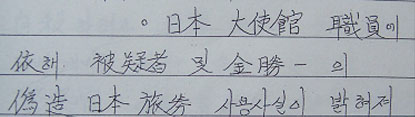 。日本 大使館 職員에
依해 被疑者 및 金勝一의
僞造 日本 旅券 사용사실이 밝혀져